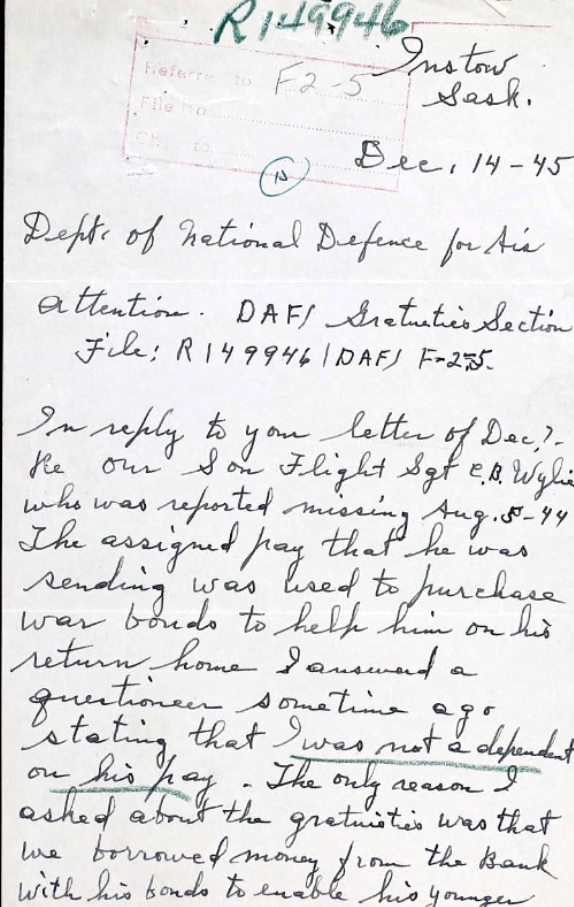 R149946
Instow
Sask.
Referred to F2-5
File No.
Ch. to
Dec. 14-45
Dept. of National Defence for Air
Attention. DAF/ Gratuities Section
File: R149946/DAF/ F-2-5.
In reply to your letter of Dec 7-
Re our Son Flight Sgt C.B. Wylie
who was reported missing Aug. 5-44
The assigned pay that he was
sending was used to purchase
war bonds to help him on his
return home I answerd a
questioneer sometime ago
stating that I was not a dependent
on his pay. The only reason I
asked about the gratuities was that
we borrowed money from the Bank
with his bonds to enable his younger